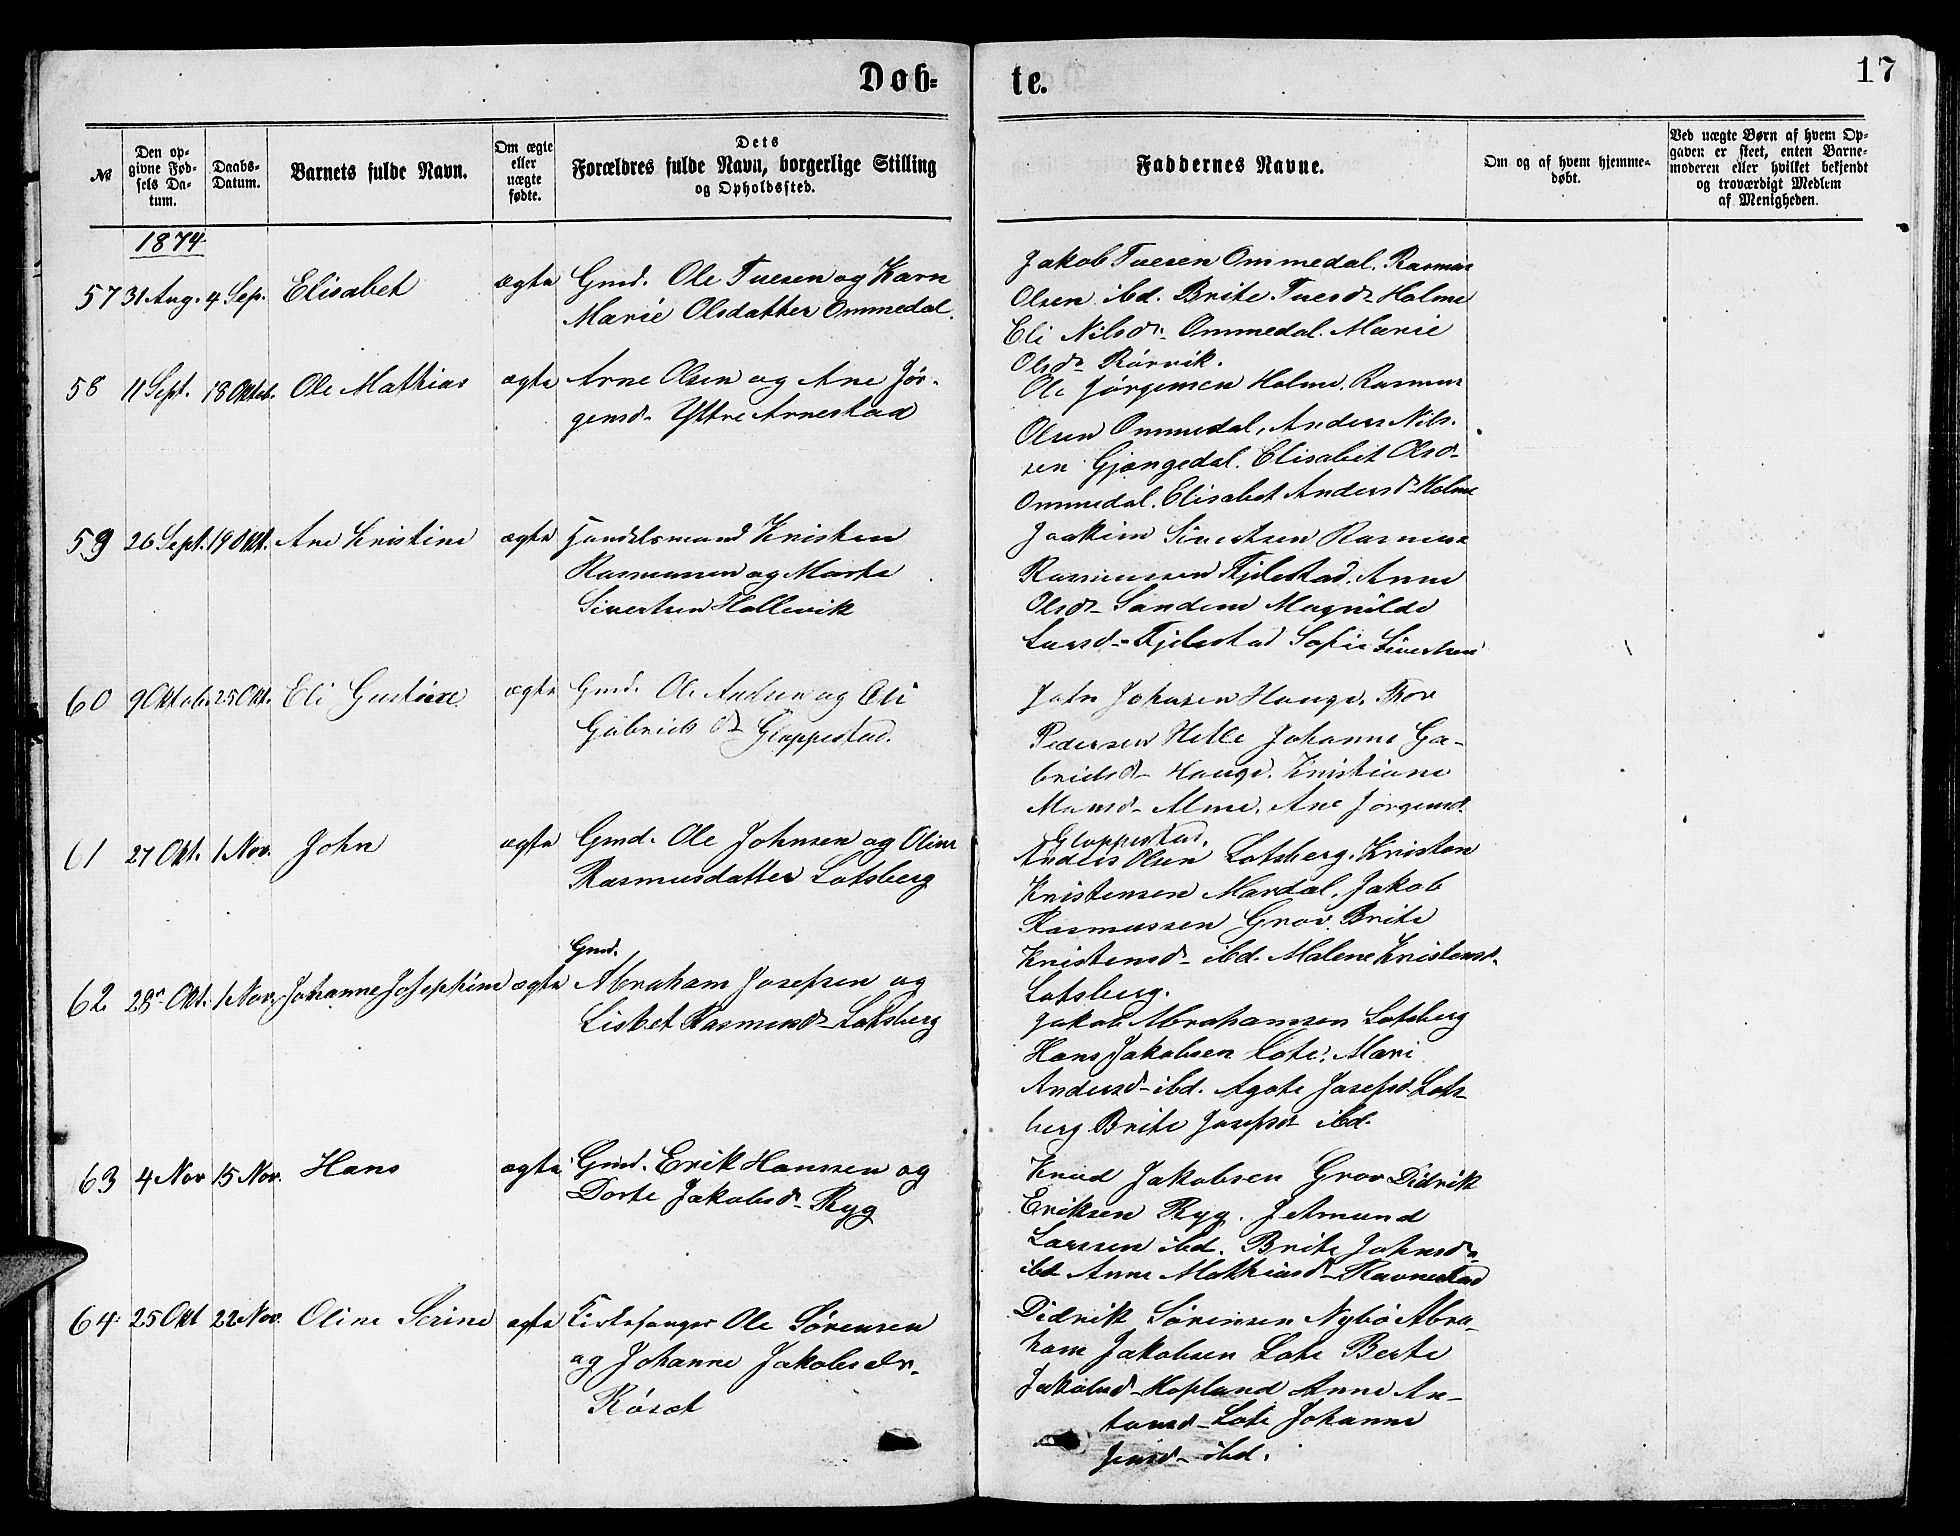 Døb-
te.
17
№
Den op-
givne Fød-
sels Da-
tum.
Daabs-
Datum.
Barnets fulde Navn.
Om ægte
eller
uægte
fødte.
Dets
Forældres fulde Navn, borgerlige Stilling
og Opholdssted.
Faddernes Navne.
Om og af hvem hjemme-
døbt.
Ved uægte Børn af hvem Op-
gaven er skeet, enten Barne-
moderen eller hvilket bekjendt
og troværdigt Medlem
af Menigheden.
1874
57 31 Aug. 4 Sep. Elisabet ægte Gmd. Ole Tuesen og Karn
Marie Olsdatter Ommedal.
Jakob Tuesen Ommedal. Rasmus
Olsen ibd. Brite Tuesdr Holme
Eli Nilsdr Ommedal. Marie
Olsdr Rørvik.
58 11 Sept. 18 Oktob. Ole Mathias ægte Arne Olsen og Ane Jør-
gensd- Yttre Arnestad
Ole Jørgensen Holme. Rasmus
Olsen Ommedal, Anders Nils-
sen Gjengedal. Elisabet Olsd-
Ommedal. Elisabet Andersd- Holme
59 26 Sept. 19 Okt. Ane Kristine ægte Handelsmand Kristen
Rasmussen og Marte
Sivertsen Hallevik
Joakim Sivertsen Rasmus
Rasmussen Fjelestad. Anne
Olsd- Sandene Magnilde
Larsd- Fjelestad Sofie Sivertsen
60 9 Oktob. 25 Okt. Eli Gustine ægte Gmd. Ole Andersen og Eli
Gabrielsd- Gloppestad.
John Johnsen Hauge. Thor
Pedersen Helle Johanne Ga-
brielsd- Hauge. Kristiane
Monsd- Alme. Ane Jørgensd.
Gloppestad.
61 27 Okt. 1 Nov. John ægte Gmd. Ole Johnsen og Oline
Rasmusdatter Lotsberg
Anders Olsen Lotsberg. Kristen
Kristensen Mardal. Jakob
Rasmussen Grov. Brite
Kristensd- ibd. Malene Kristensd-
Lotsberg.
62 28 Okt. 1 Nov. Johanne Josephine ægte Gmd.
Abraham Josefsen og
Lisbet Rasmusd- Lotsberg
Jakob Abrahamsen Lotsberg
Hans Jakobsen Lote, Mari
Andersd- ibd. Agote Josefsd- Lots-
berg Brite Josefsd ibd.
63 4 Nov 15 Nov. Hans ægte Gmd. Erik Hanssen og
Dorte Jakobsd- Ryg
Knud Jakobsen Grov Didrik
Eriksen Ryg. Amund
Larssen ibd. Brite Johnsd-
ibd Anne Mathiasd- Ravnestad
64 25 Okt 22 Nov. Oline Serine ægte Ole Sørensen
og Johanne Jakobsdr.
Røset
Didrik Sørensen Nybø Abra-
ham Jakobsen Lote Berte
Jakobsd- Hopland Anne An-
tonsd- Lote Johanne
Jensd- ibd.